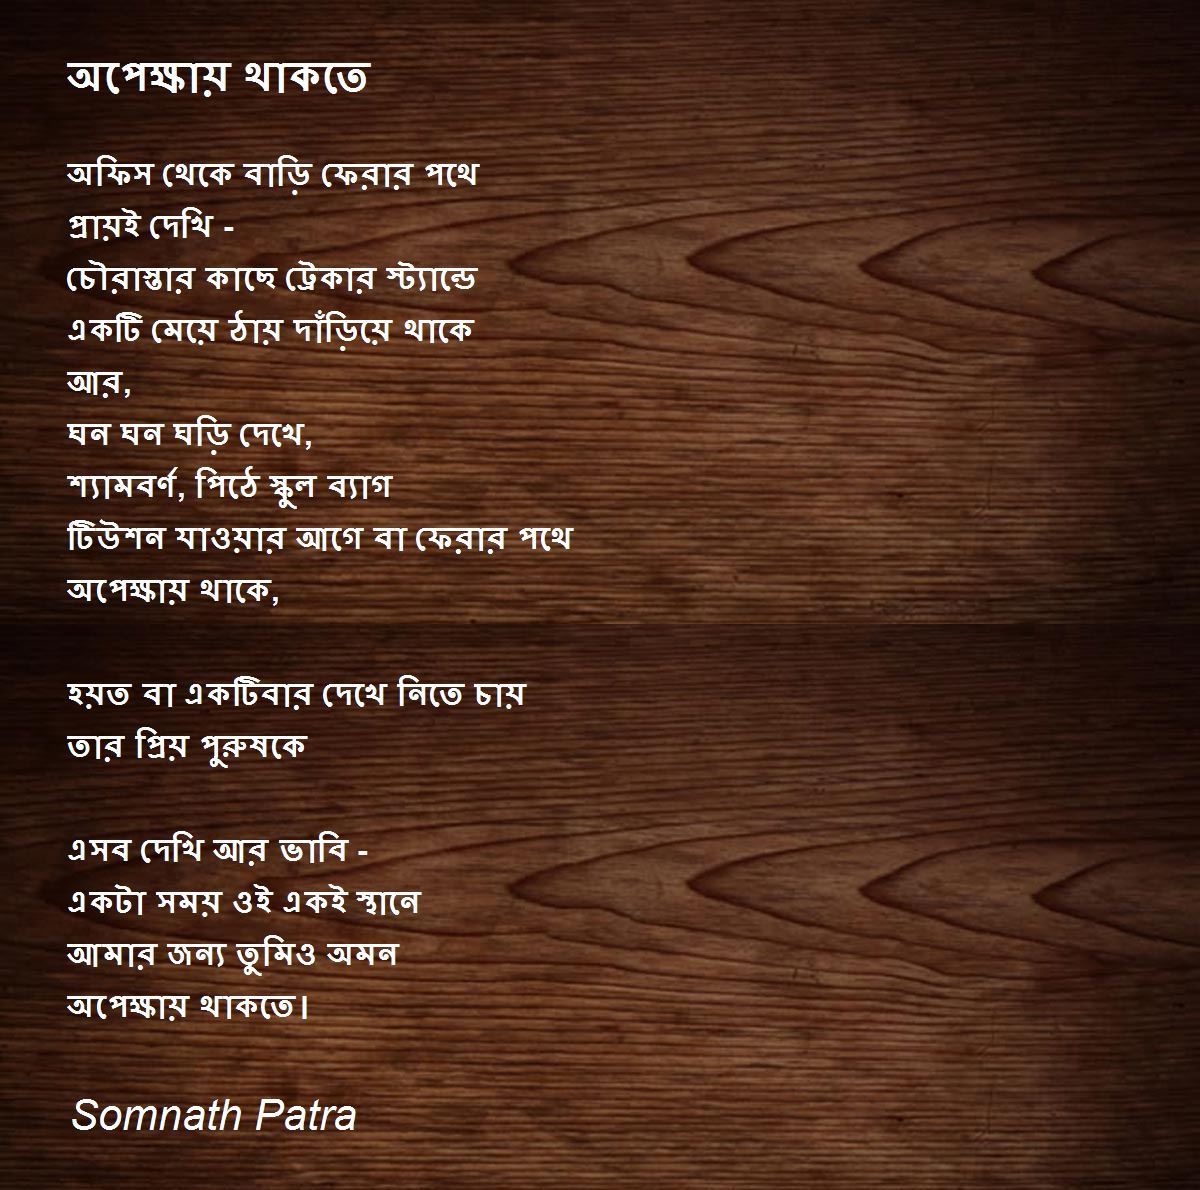 অপেক্ষায় থাকতে
অফিস থেকে বাড়ি ফেরার পথে
প্রায়ই দেখি -
চৌরাস্তার কাছে ট্রেকার স্ট্যান্ডে
একটি মেয়ে ঠায় দাঁড়িয়ে থাকে
আর,
ঘন ঘন ঘড়ি দেখে,
শ্যামবর্ণ, পিঠে স্কুল ব্যাগ
টিউশন যাওয়ার আগে বা ফেরার পথে
অপেক্ষায় থাকে,
হয়ত বা একটিবার দেখে নিতে চায়
তার প্রিয় পুরুষকে
এসব দেখি আর ভাবি -
একটা সময় ওই একই স্থানে
আমার জন্য তুমিও অমন
অপেক্ষায় থাকতে।
Somnath Patra